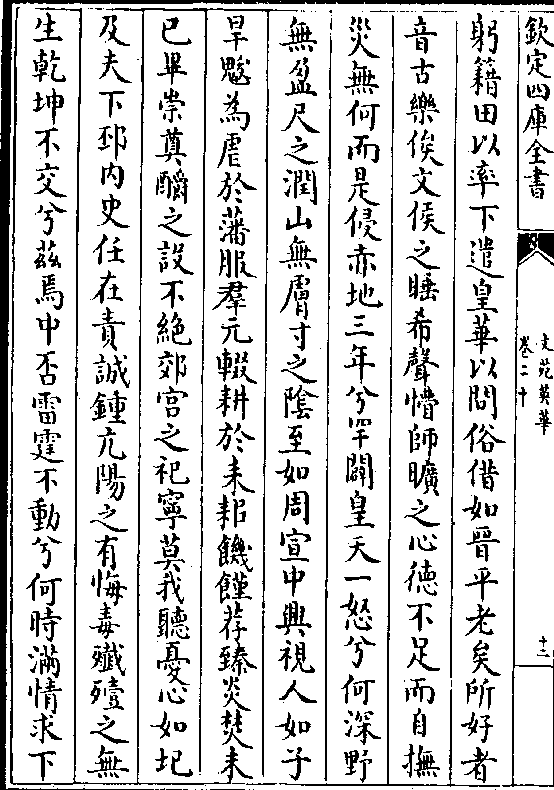 欽定四庫全書
文苑英華
卷二十
十二
躬籍田以率下遣皇華以問俗借如晉平老矣所好者
音古樂俟文侯之睡希聲懵師曠之心德不足而自撫
災無何而是侵赤地三年兮罕闢皇天一怒兮何深野
無盈尺之潤山無膚寸之陰至如周宣中興視人如子
旱魃為虐於藩服羣元輟耕於耒耜饑饉荐臻炎焚未
已畢崇奠酹之設不絶郊宫之祀寧莫我聽憂心如圮
及夫下邳内史任在責誠鍾亢陽之有悔毒殲殪之無
生乾坤不交兮茲焉中否雷霆不動兮何時滿情求下